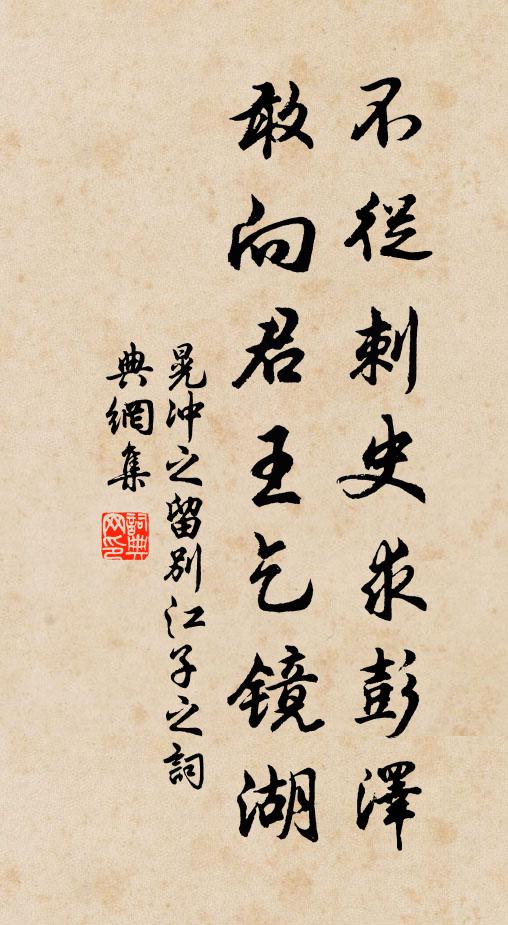 不從刺史求彭澤
敢向君王乞镜湖
晁冲之留別江子之詞
典網集
詞典網印